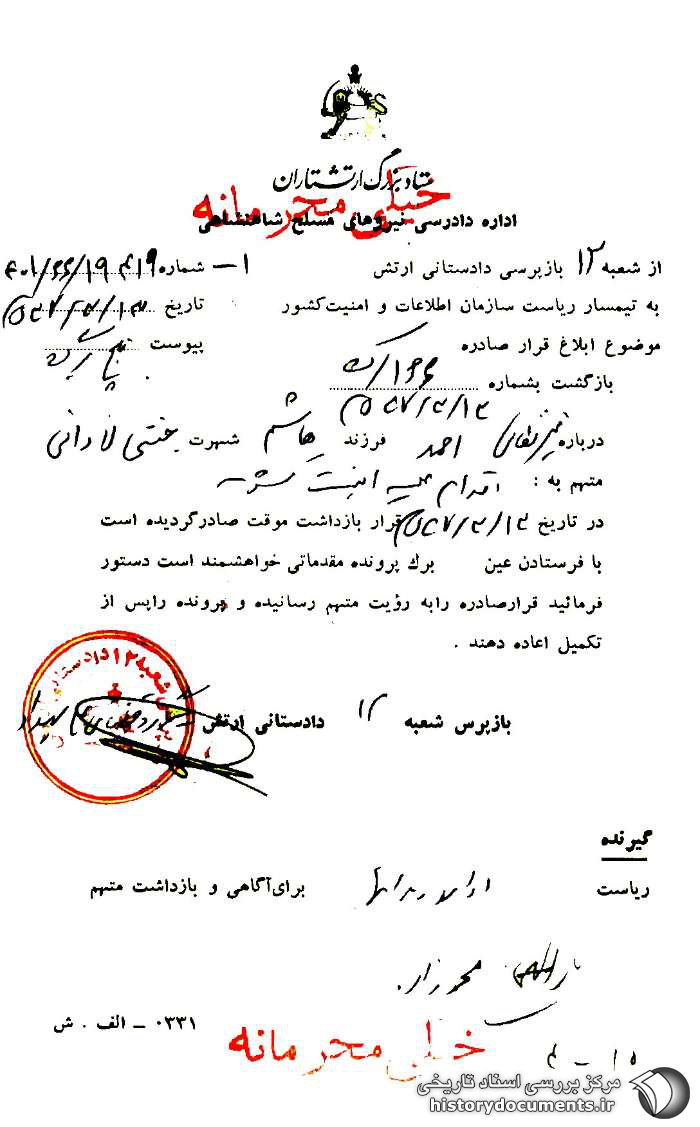 ستاد بزرگ ارتشتاران
خیلی محرمانه
اداره دادرسی نیروهای مسلح شاهنشاهی
از شعبه ۱۲ بازپرسی دادستانی ارتش
۱- شماره ۴۰۱/۶۶/۱۹۴۱۹
به تیمسار ریاست سازمان اطلاعات و امنیت کشور
تاریخ
موضوع ابلاغ قرار صادره
پیوست برگ
بازگشت بشماره
درباره احمد فرزند هاشم شهرت
متهم به : اقدام علیه امنیت
در تاریخ قرار بازداشت موقت صادر گردیده است
با فرستادن عین برك پرونده مقدماتی خواهشمند است دستور
فرمائید قرارصادره رابه رؤیت متهم رسانیده و پرونده راپس از
تکمیل اعاده دهند .
بازپرس شعبه ۱۲ دادستانی ارتش
شعبه ۱۲ دادستانی
گیرنده
ریاست برای آگاهی و بازداشت متهم
۰۳۳۱ – الف . ش
خیلی محرمانه
مرکز بررسی اسناد تاریخی
historydocuments.ir